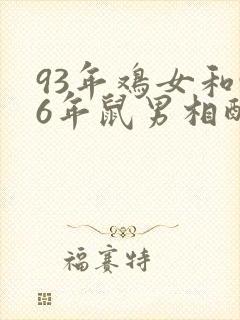 93年鸡女和
6年鼠男相
福赛特